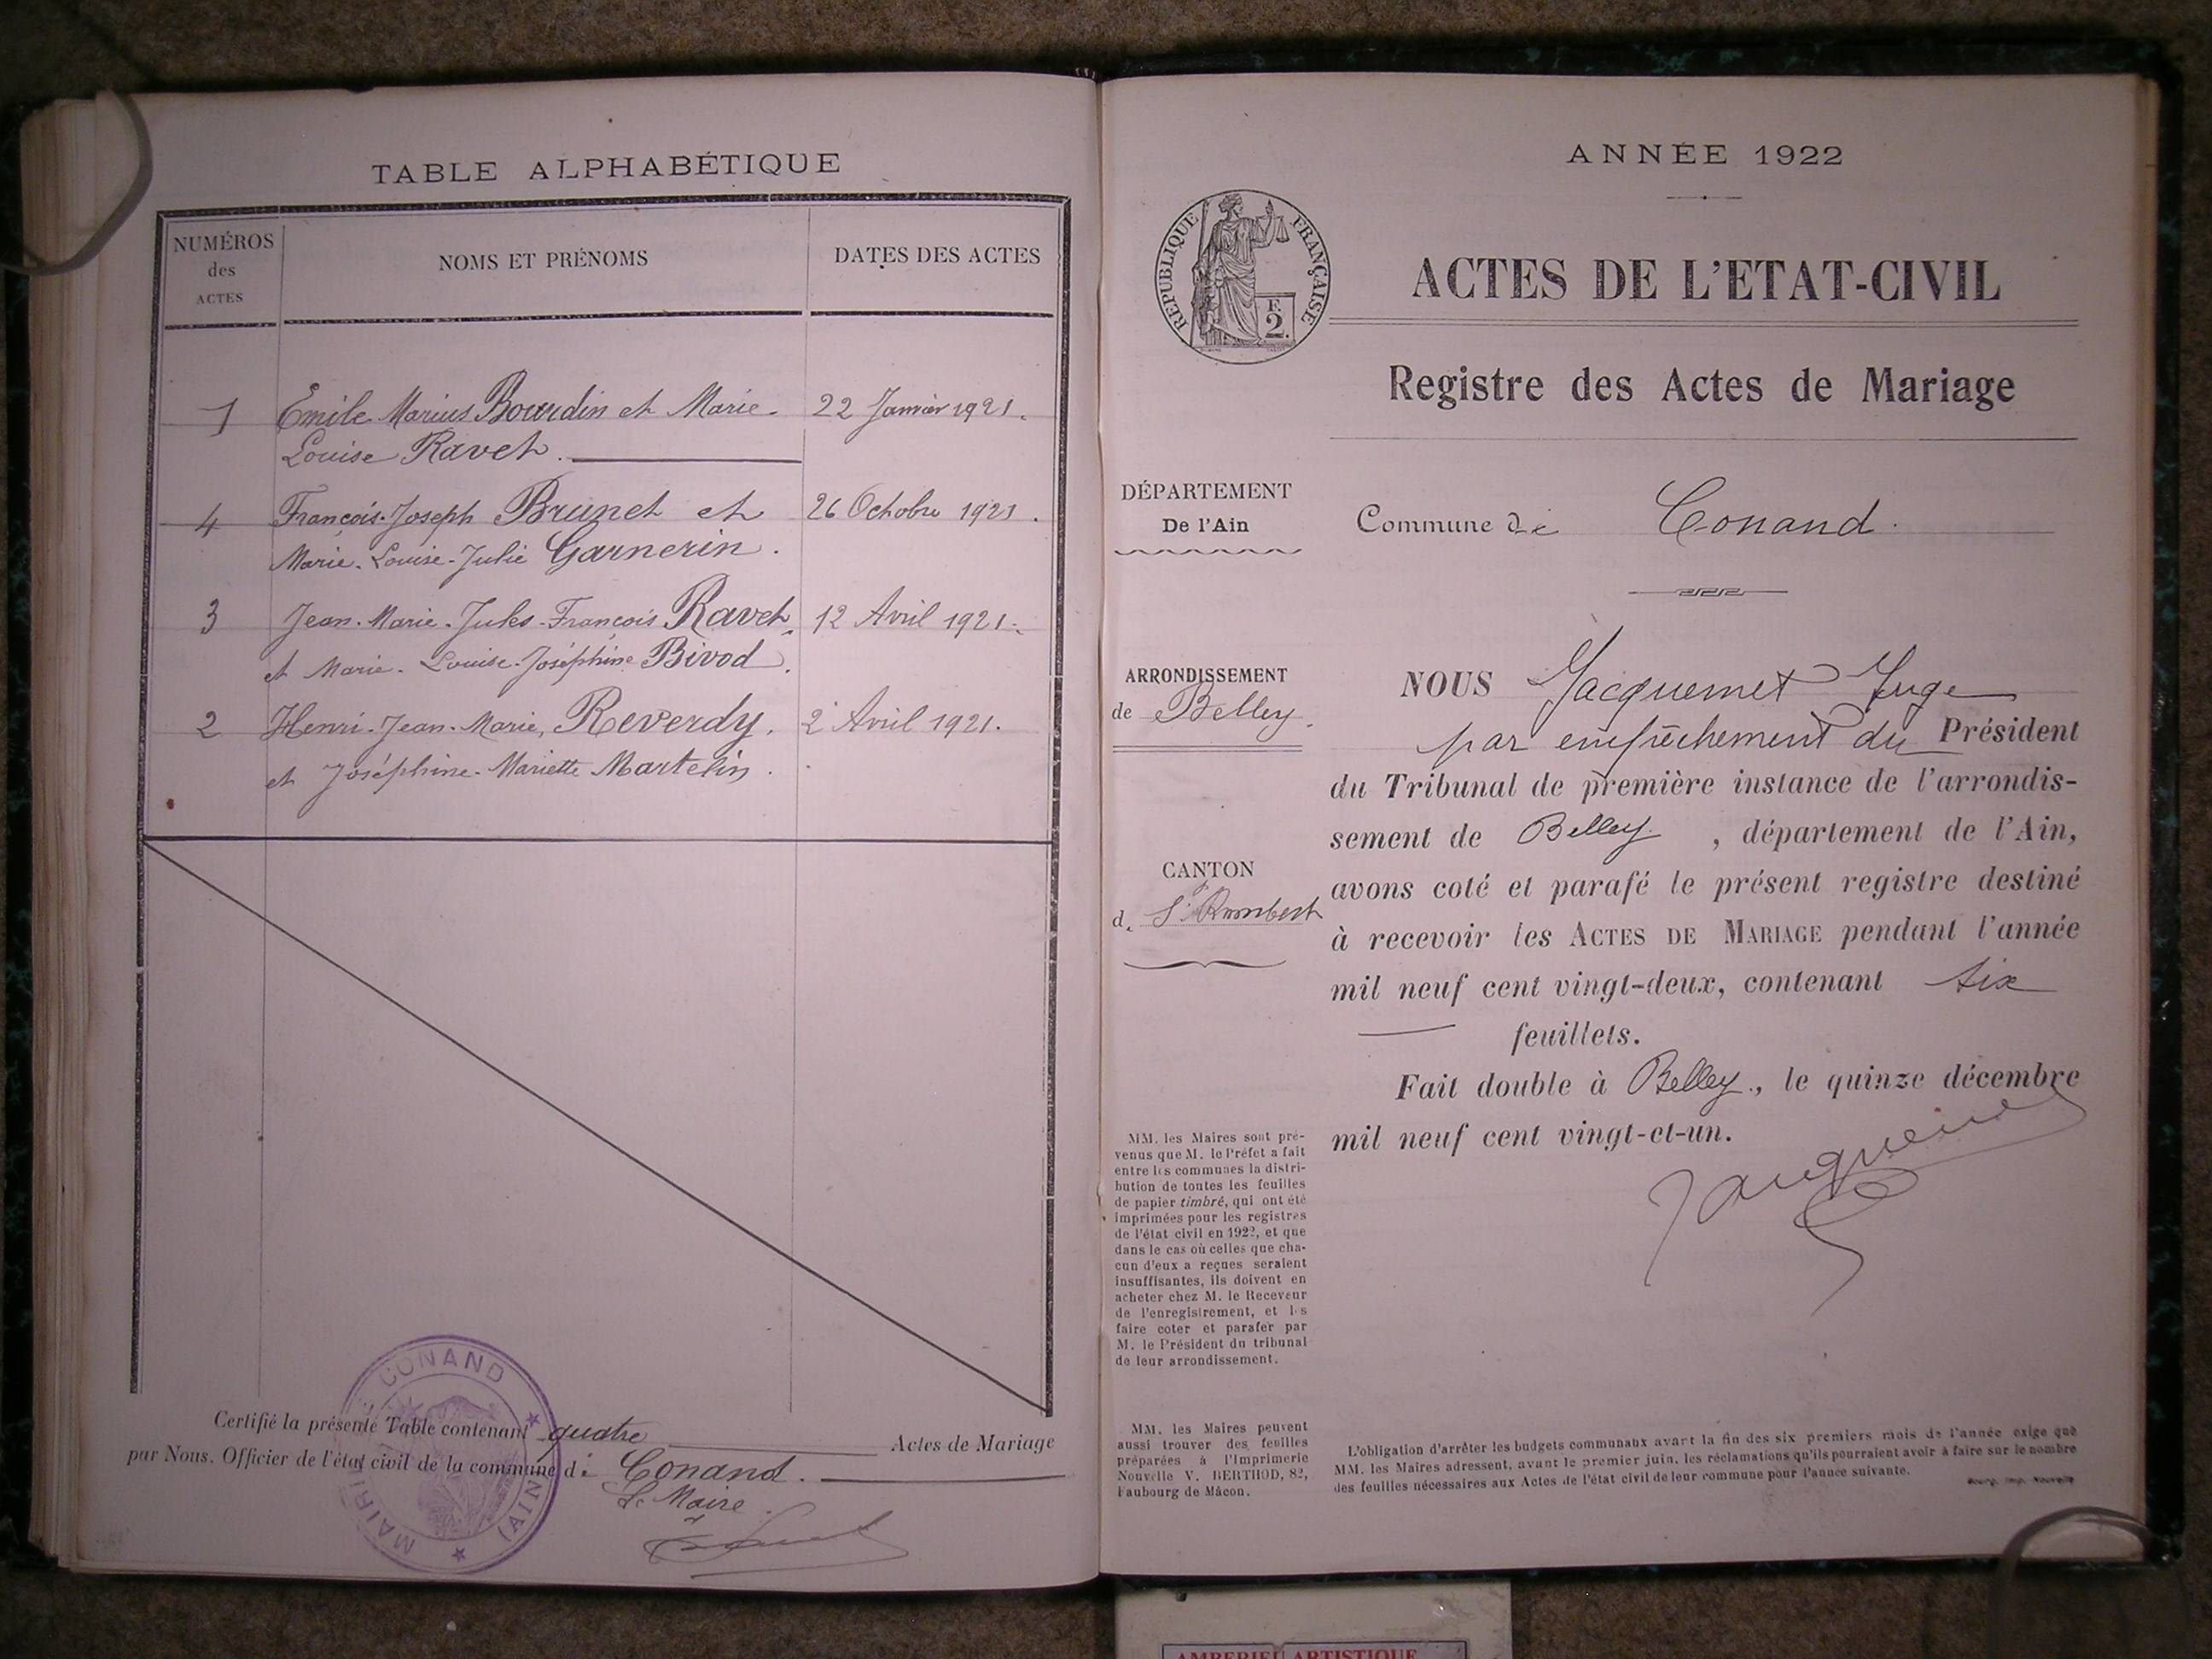 TABLE ALPHABÉTIQUE
NUMÉROS
des
ACTES
NOMS ET PRÉNOMS
DATES DES ACTES
1 Emile Marius Bourdin et Marie- 22 Janvier 1921.
Louise Ravet.
4 François-Joseph Brunet et 26 Octobre 1921.
Marie-Louise-Julie Garnerin.
3 Jean-Marie-Jules-François Ravet, 12 Avril 1921.
et Marie-Louise-Joséphine Bivod.
2 Henri-Jean-Marie, Reverdy, 2 Avril 1921.
et Joséphine-Mariette Martelin.
Certifié la présente Table contenant quatre Actes de Mariage
par Nous, Officier de l'état civil de la commune de Conand.
Le Maire.
MAIRIE CONAND (AIN)
ANNÉE 1922
RÉPUBLIQUE FRANÇAISE
F.
2.
ACTES DE L'ETAT-CIVIL
Registre des Actes de Mariage
DÉPARTEMENT
De l'Ain
Commune de Conand.
ARRONDISSEMENT
de Belley.
CANTON
de St Rambert
NOUS Jacquemet Juge
par empêchement du Président
du Tribunal de première instance de l'arrondis-
sement de Belley, département de l'Ain,
avons coté et parafé le présent registre destiné
à recevoir les ACTES DE MARIAGE pendant l'année
mil neuf cent vingt-deux, contenant six
feuillets.
Fait double à Belley., le quinze décembre
mil neuf cent vingt-et-un.
Jacquemet
MM. les Maires sont pré-
venus que M. le Préfet a fait
entre les communes la distri-
bution de toutes les feuilles
de papier timbré, qui ont été
imprimées pour les registres
de l'état civil en 1922, et que
dans le cas où celles que cha-
cun d'eux a reçues seraient
insuffisantes, ils doivent en
acheter chez M. le Receveur
de l'enregistrement, et les
faire coter et parafer par
M. le Président du tribunal
de leur arrondissement.
MM. les Maires peuvent
aussi trouver des feuilles
préparées à l'Imprimerie
Nouvelle V. BERTHOD, 82,
Faubourg de Mâcon.
L'obligation d'arrêter les budgets communaux avant la fin des six premiers mois de l'année exige que
MM. les Maires adressent, avant le premier juin, les réclamations qu'ils pourraient avoir à faire sur le nombre
des feuilles nécessaires aux Actes de l'état civil de leur commune pour l'année suivante.
Bourg, Imp. Nouvelle
AMBERIEU ARTISTIQUE